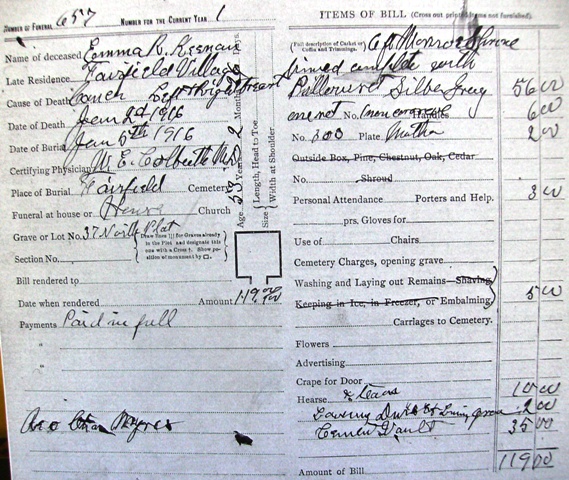 NUMBER OF FUNERAL 657 NUMBER FOR THE CURRENT YEAR 1
Name of deceased Emma R.
Late Residence Fairfield Village
Cause of Death Left Breast
Date of Death Jan 2d 1916
Date of Burial Jan 5th 1916
Certifying Physician W. E. M.D.
Place of Burial Fairfield Cemetery
Funeral at house or House Church
Grave or Lot No. 37 North Plat
Draw lines for Graves already in the Plot and designate this one with a Cross. Show position of monument by
Section No.
Bill rendered to
Date when rendered Amount 119.00
Payments Paid in full
"
"
Age 53 Years 2 Months Days
Size Length, Head to Toe
Width at Shoulder
ITEMS OF BILL (Cross out printed items not furnished).
(Full description of Casket or Coffin and Trimmings. 6ft Monroe
with
Silver Grey 56 00
Handles 6 00
No. 300 Plate Mother 2 00
Outside Box, Pine, Chestnut, Oak, Cedar
No. Shroud
Personal Attendance Porters and Help. 3 00
prs. Gloves for
Use of Chairs
Cemetery Charges, opening grave
Washing and Laying out Remains Shaving
Keeping in Ice, in Freezer, or Embalming 5 00
Carriages to Cemetery.
Flowers
Advertising
Crape for Door
Hearse 10 00
Lowering 2 00
Cement Vault 35 00
Amount of Bill 119 00